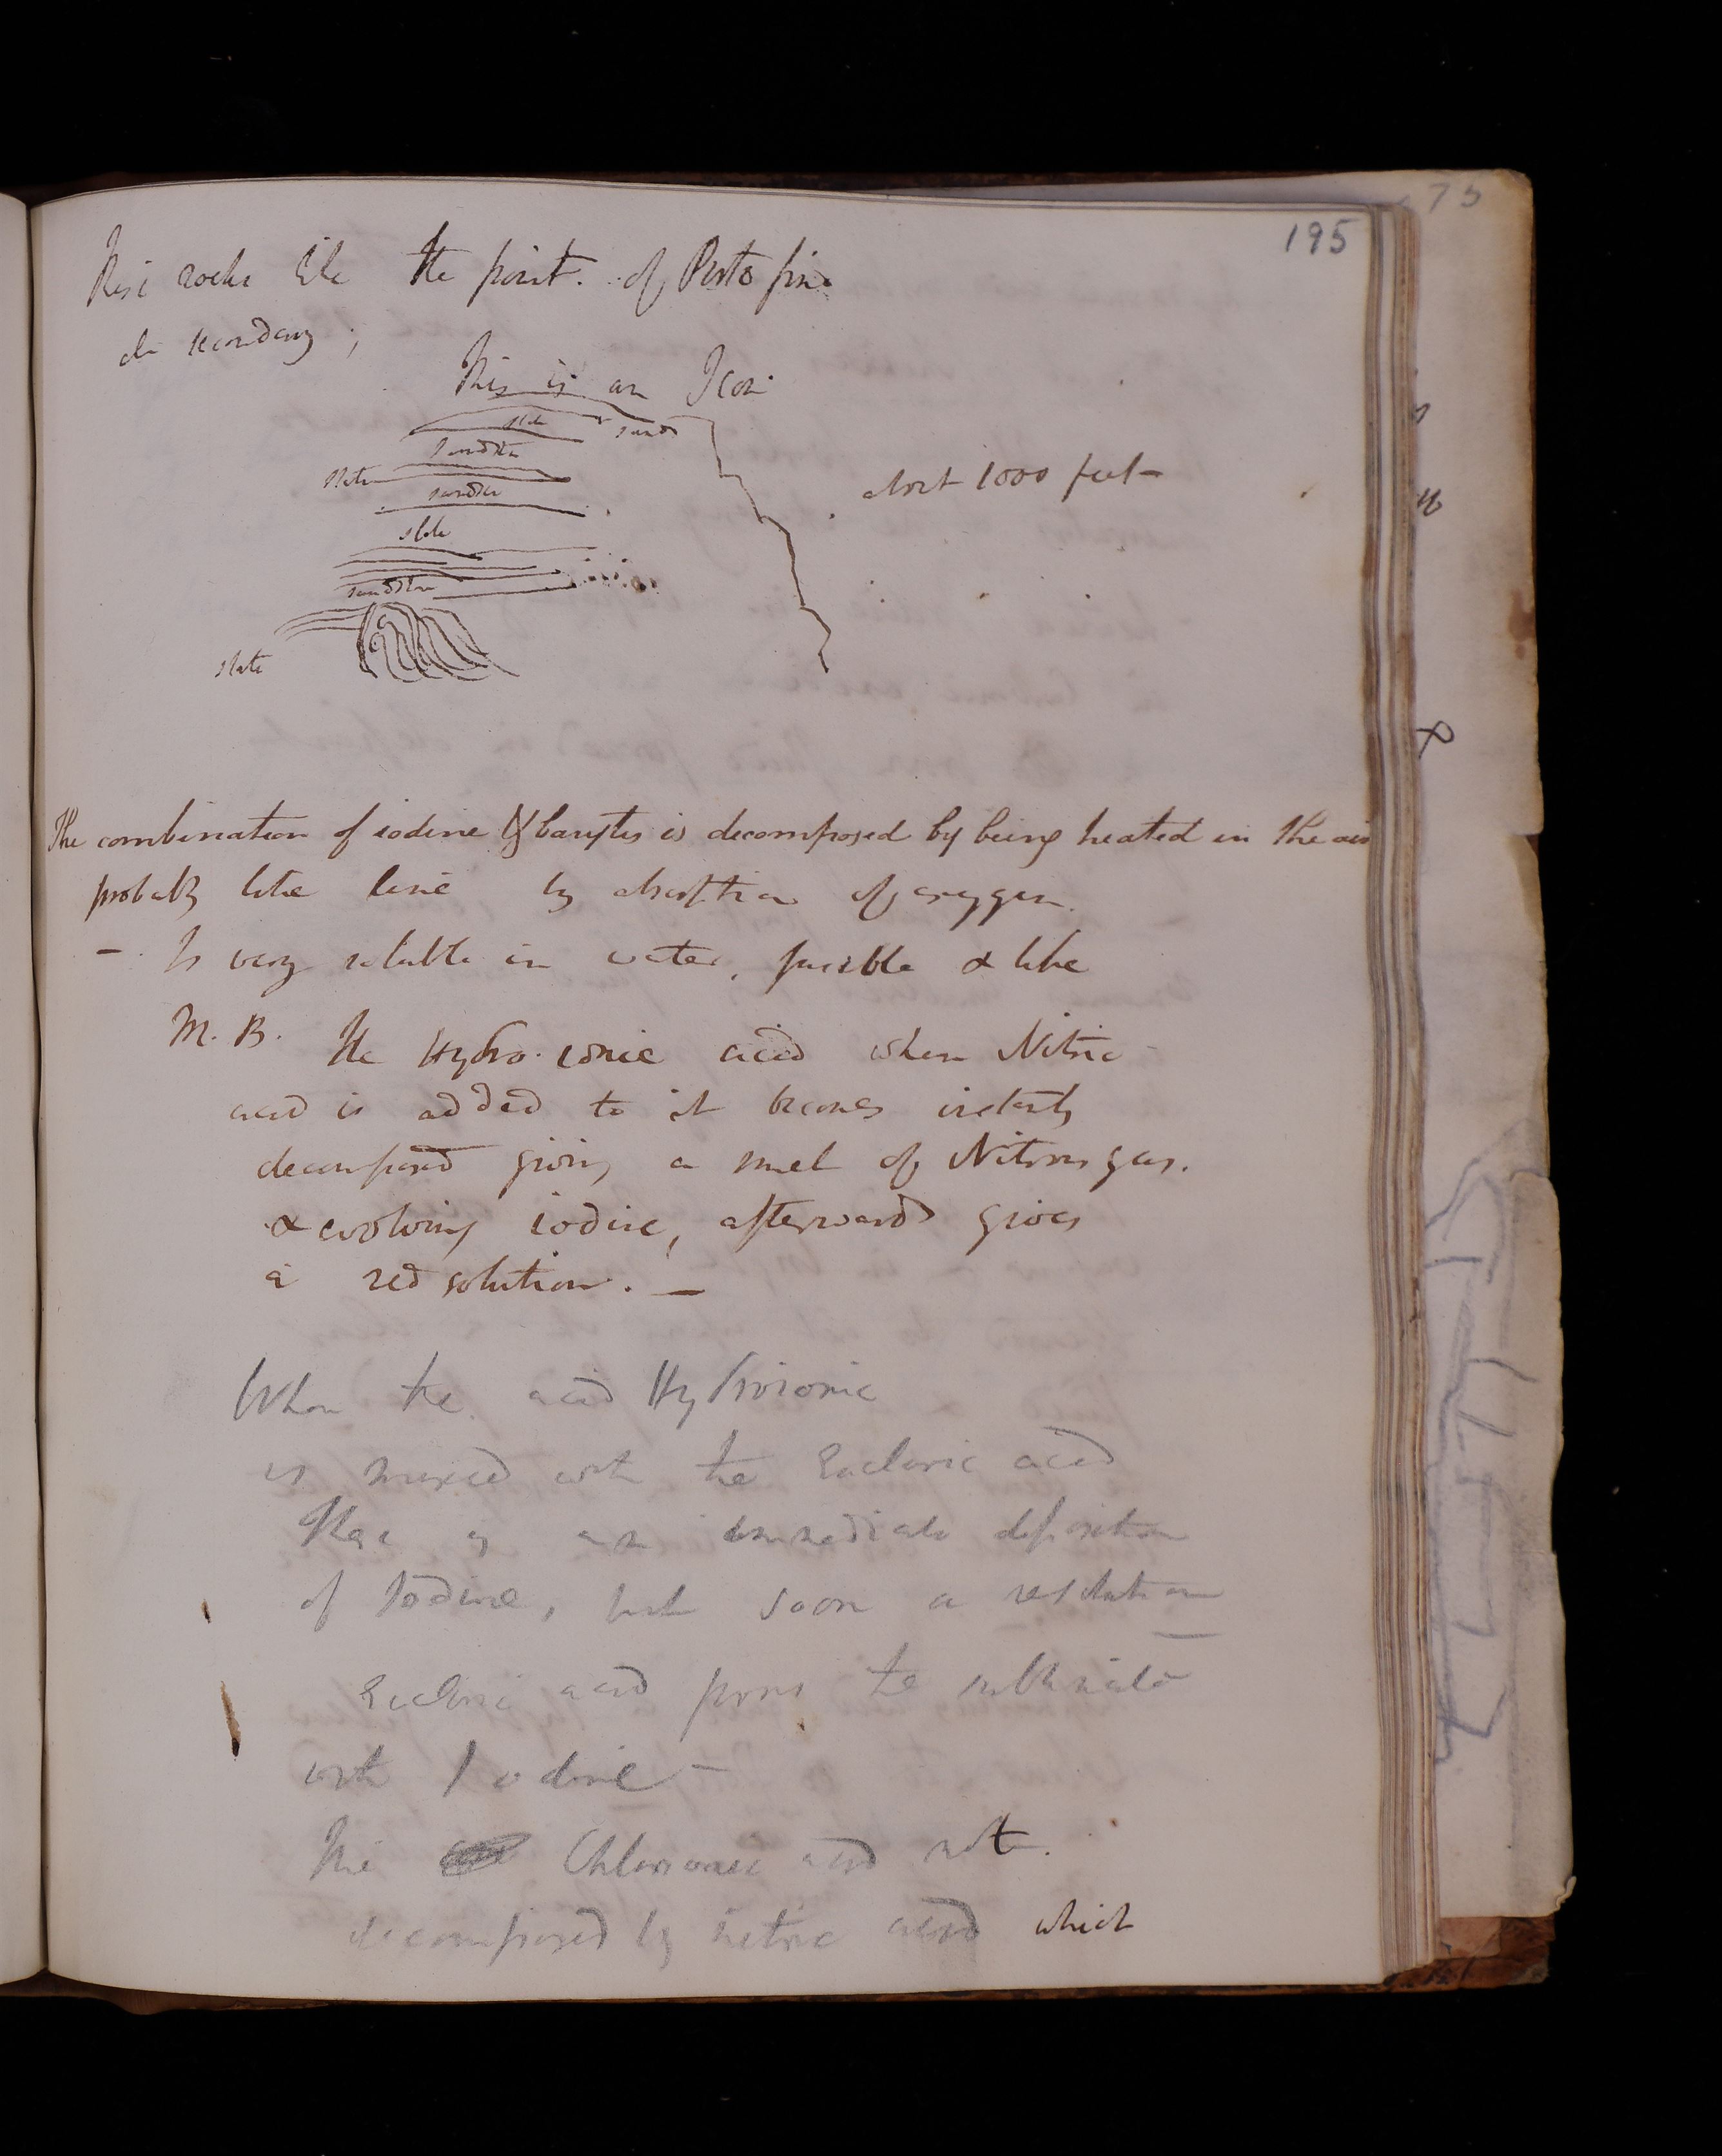 195
75
These rocks like the point. of Porto fino
are secondary ;
This is an Icon
slate
sand
sandstn
Slate
sandstn
about 1000 feet
slate
sandstn
slate
The combination of iodine & barytes is decomposed by being heated in the air
probably like lime by absorption of oxygen.
— Is very soluble in water, fusible & like
M. B. The Hydro-ionic acid when Nitric
acid is added to it becomes instantly
decomposed giving a smell of Nitrous gas.
& evolving iodine, afterwards gives
a red solution. —
When the acid Hydroionic
is mixed with the Euchloric acid
there is an immediate deposition
of Iodine, but soon a resolution
Euchloric acid forms the sublimate
with Iodine —
The Chlorionic acid not
decomposed by nitric acid which